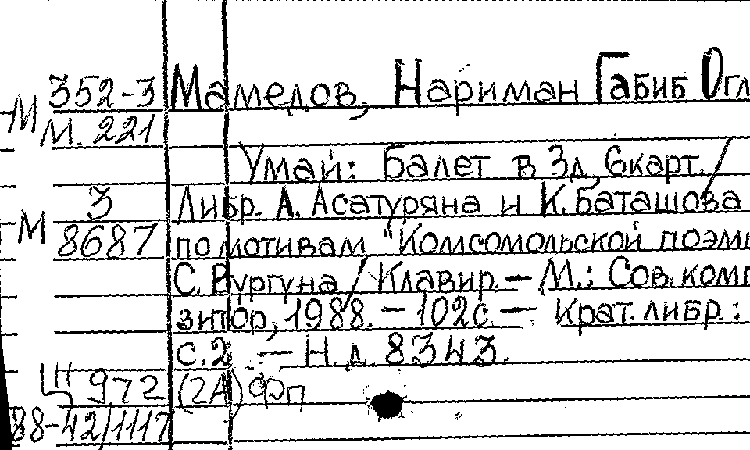 М 352-3 Мамедов, Нариман Габиб Огл
М. 221
Умай: Балет в 3д, 6карт. /
М 3 Либр. А. Асатуряна и К. Баташова
8687 по мотивам "Комсомольской поэм
С. Вургуна / Клавир. — М.: Сов. комп
зитор, 1988. — 102с. — Крат. либр.:
с. 2 . — Н. д. 8343.
Щ 972 (2А) Фп
88-42/1117